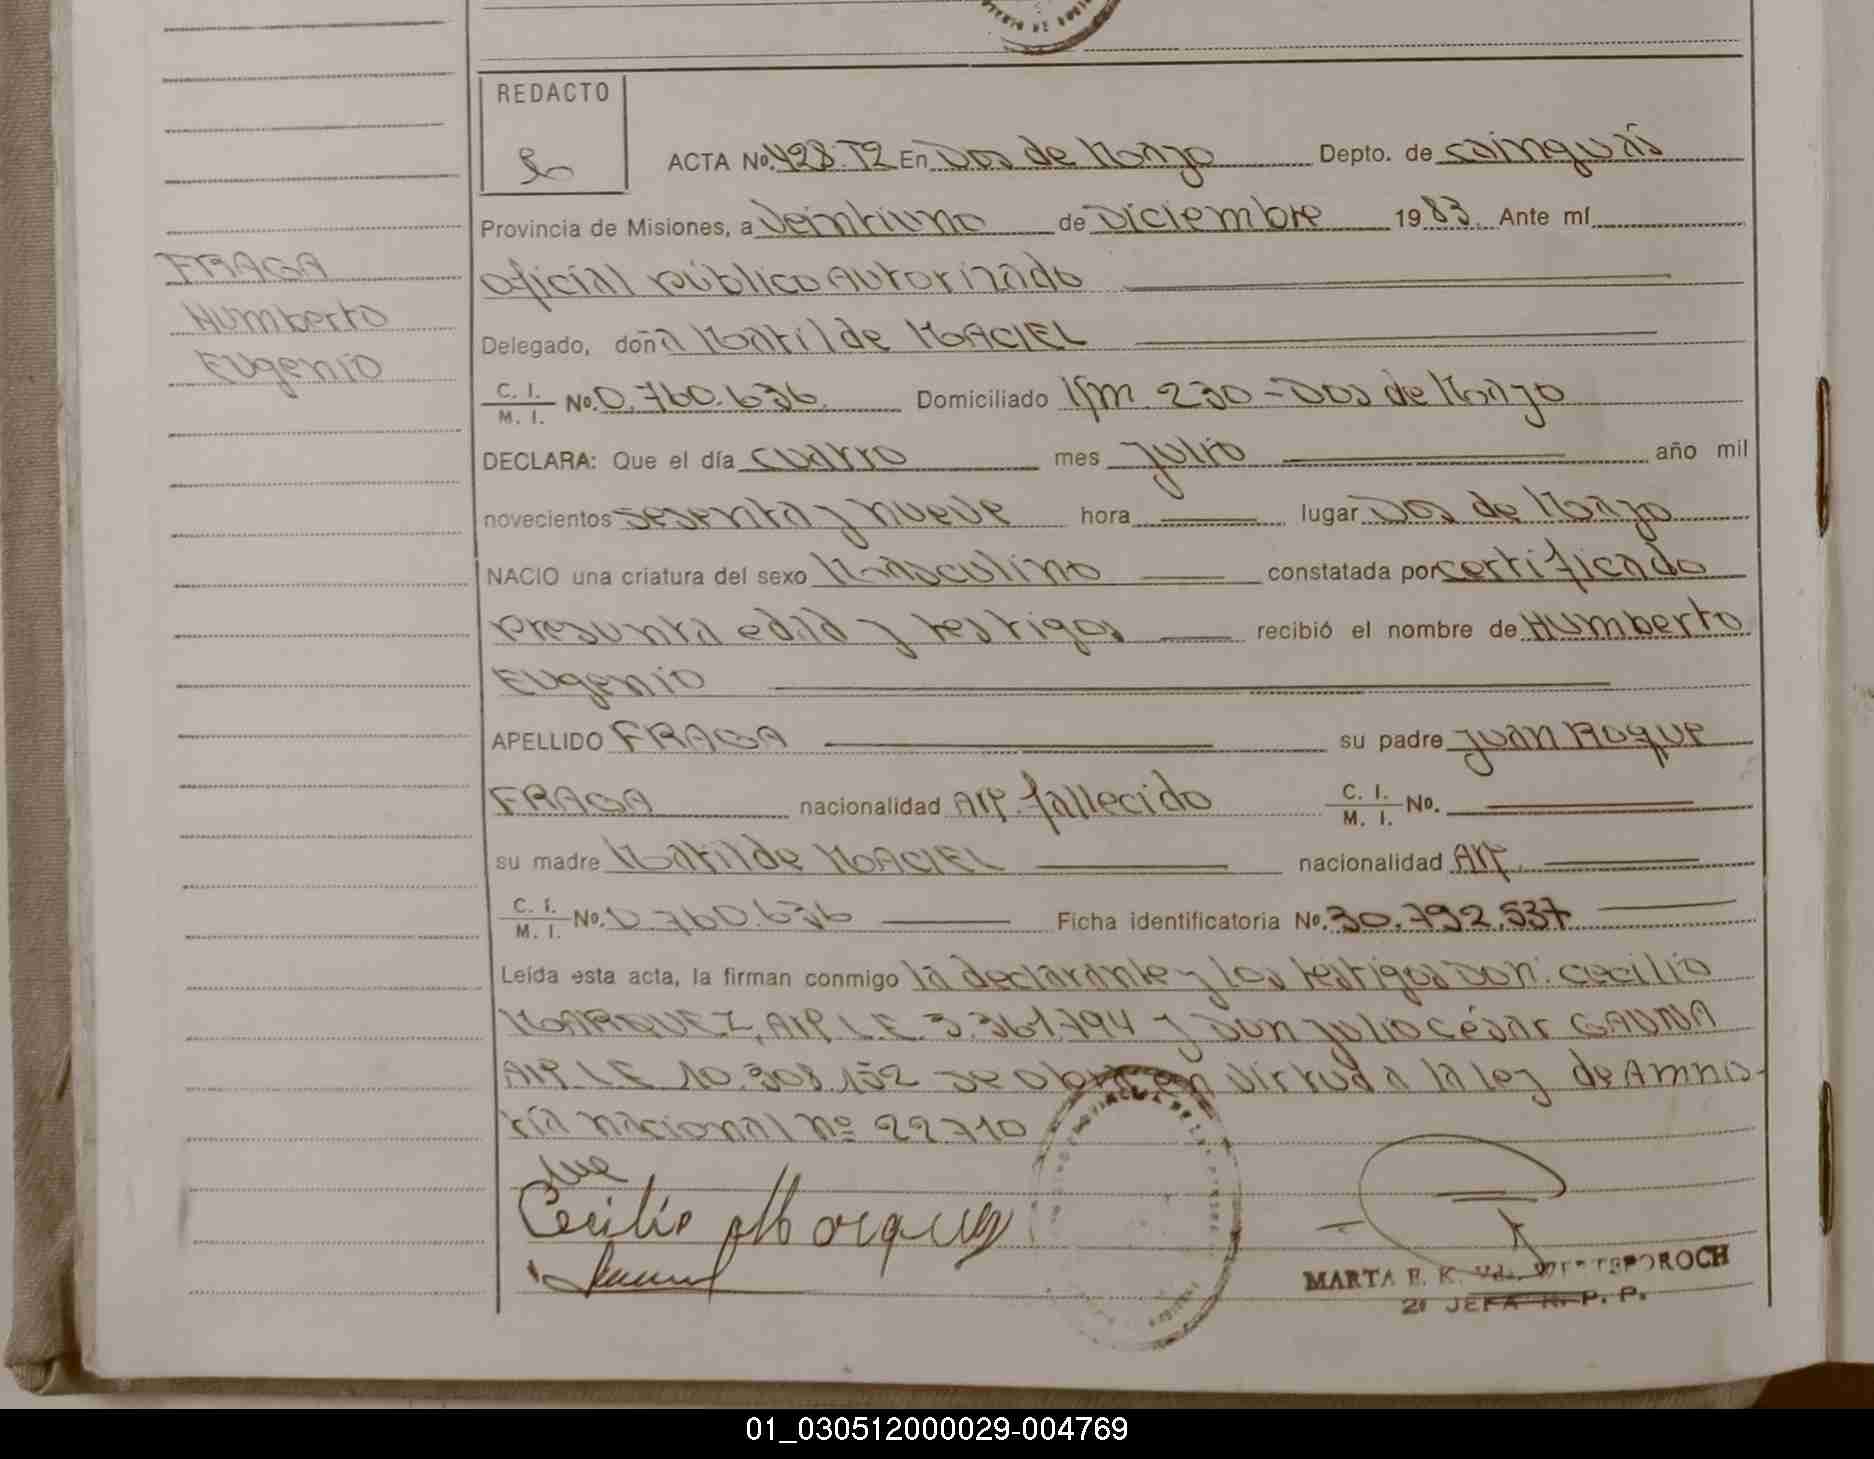 REDACTO
ACTA No. 428. T2 En Dos de Mayo Depto. de Cainguás
Provincia de Misiones, a Veintiuno de Diciembre 1983. Ante mí
Oficial público Autorizado
FRAGA
Humberto
Eugenio
Delegado, doña Matilde MACIEL
C. I. / M. I. No. 0.760.636. Domiciliado Km. 230 - Dos de Mayo
DECLARA: Que el día cuatro mes Julio año mil
novecientos sesenta y nueve hora lugar Dos de Mayo
NACIO una criatura del sexo Masculino constatada por certificado
presunta edad y testigos recibió el nombre de Humberto
Eugenio
APELLIDO FRAGA su padre Juan Roque
FRAGA nacionalidad Arg. fallecido C. I. / M. I. No.
su madre Matilde MACIEL nacionalidad Arg.
C. I. / M. I. No. 0.760.636 Ficha identificatoria No. 30.792.537
Leída esta acta, la firman conmigo la declarante y los testigos Don: Cecilio
MARQUEZ, Arg. L.E. 3.361.794 y Don Julio César GAUNA
Arg. L.E 10.303.152 se obra en virtud a la ley de Amnis-
tía nacional nº 22.710
Cecilio Marquez
MARTA E. K. Vda.
2ª JEFA R. P. P.
01_030512000029-004769